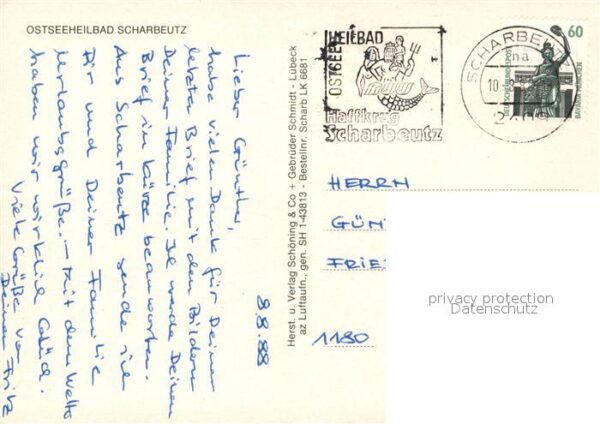 OSTSEEHEILBAD SCHARBEUTZ
8.8.88
Lieber Günther,
habe vielen Dank für Deinen
letzten Brief mit den Bildern
Deiner Familie. Ich werde Deinen
Brief in Kürze beantworten.
Aus Scharbeutz sende ich
Dir und Deiner Familie
Urlaubsgrüße. - Mit dem Wetter
haben wir wirklich Glück.
Viele Grüße von
Deinem Fritz
Herst. u. Verlag Schöning & Co + Gebrüder Schmidt - Lübeck
az Luftaufn., gen. SH 1-43813 - Bestellnr. Scharb LK 6681
OSTSEE
HEILBAD
Haffkrug
Scharbeutz
SCHARBEUTZ
na
10.
60
DEUTSCHE BUNDESPOST
BAVARIA MÜNCHEN
HERRN
GÜN
FRIE
1180
privacy protection
Datenschutz